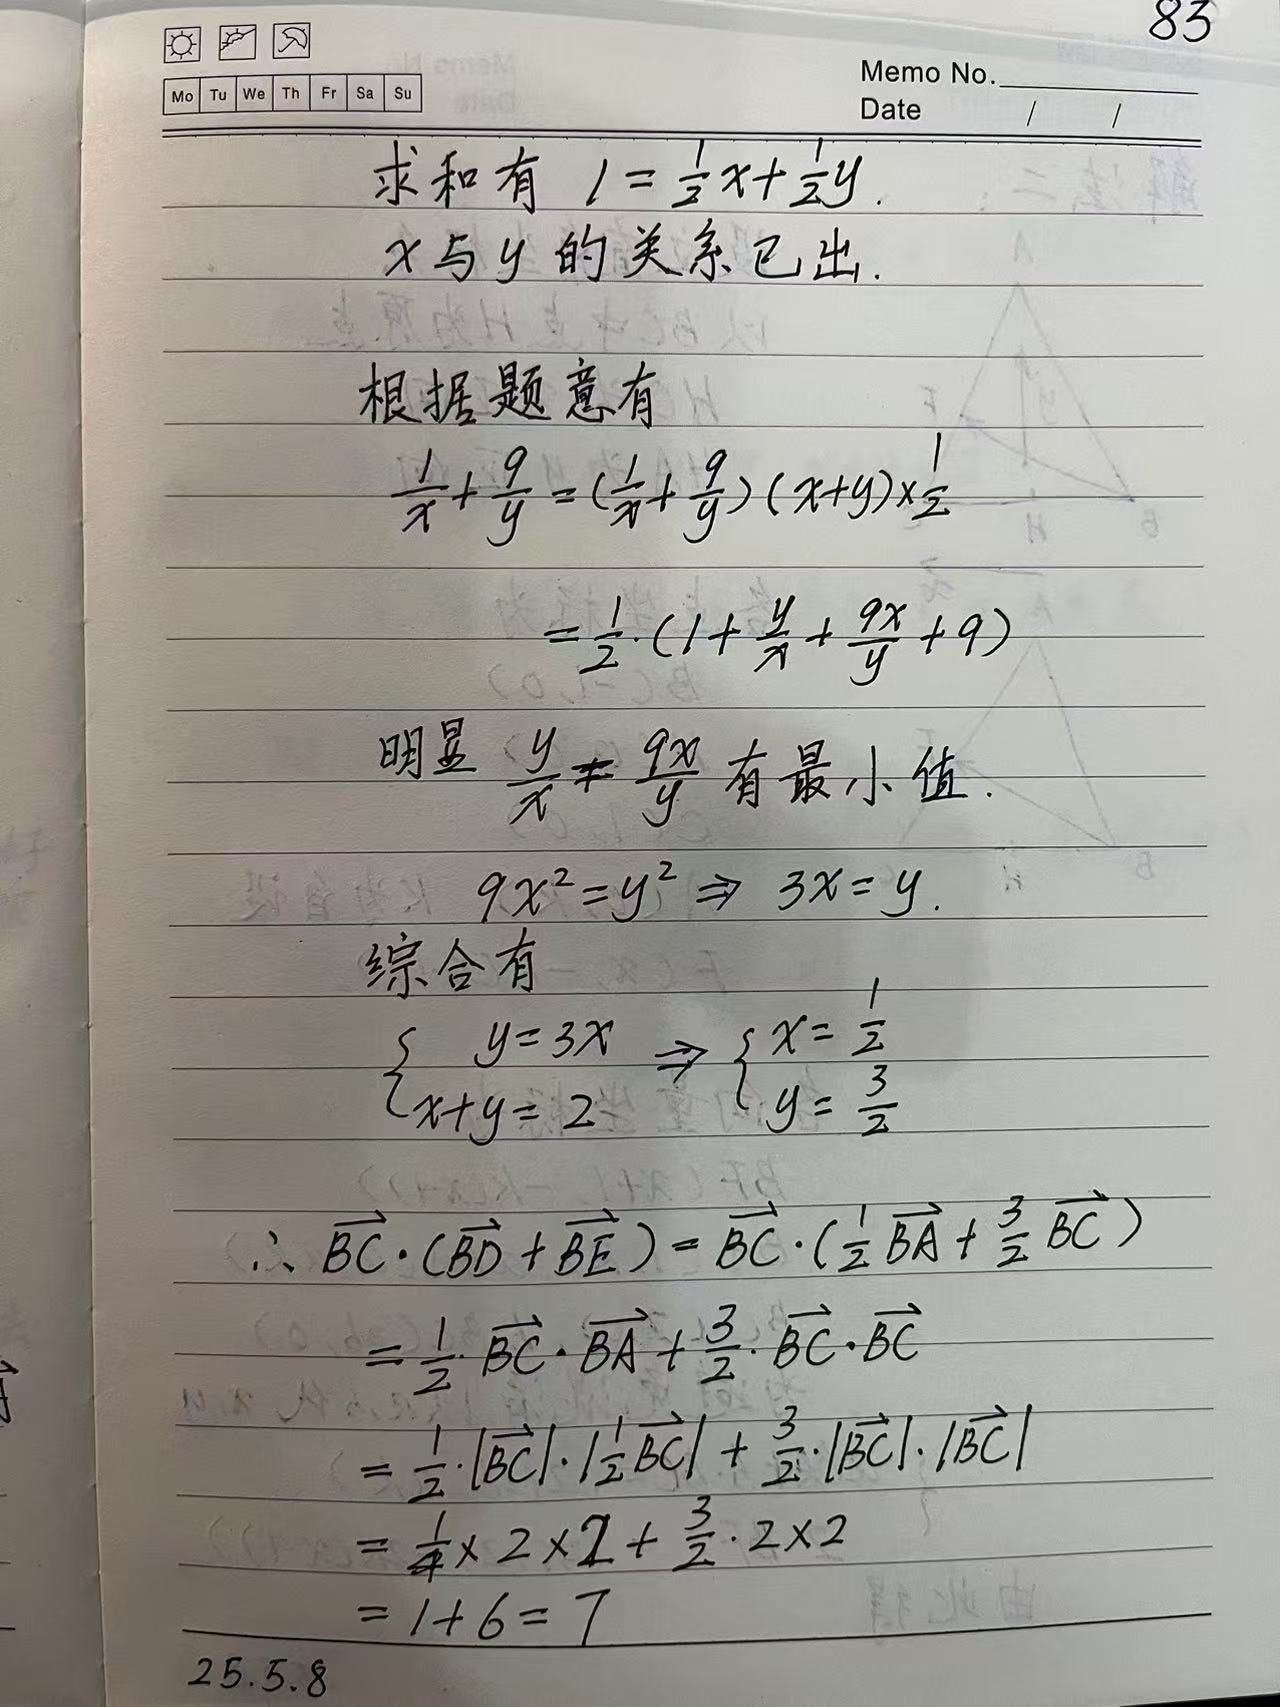 83
Mo Tu We Th Fr Sa Su
Memo No.
Date / /
求和有 1 = 1/2 x + 1/2 y.
x与y的关系已出.
根据题意有
1/x + 9/y = (1/x + 9/y)(x+y)×1/2
= 1/2·(1 + y/x + 9x/y + 9)
明显 y/x = 9x/y 有最小值.
9x² = y² ⇒ 3x = y.
综合有
{ y = 3x ⇒ { x = 1/2
x+y = 2 y = 3/2
∴ BC→·(BD→ + BE→) = BC→·(1/2 BA→ + 3/2 BC→)
= 1/2·BC→·BA→ + 3/2·BC→·BC→
= 1/2·|BC→|·|1/2 BC→| + 3/2·|BC→|·|BC→|
= 1/4 × 2 × 2 + 3/2·2×2
= 1+6 = 7
25.5.8